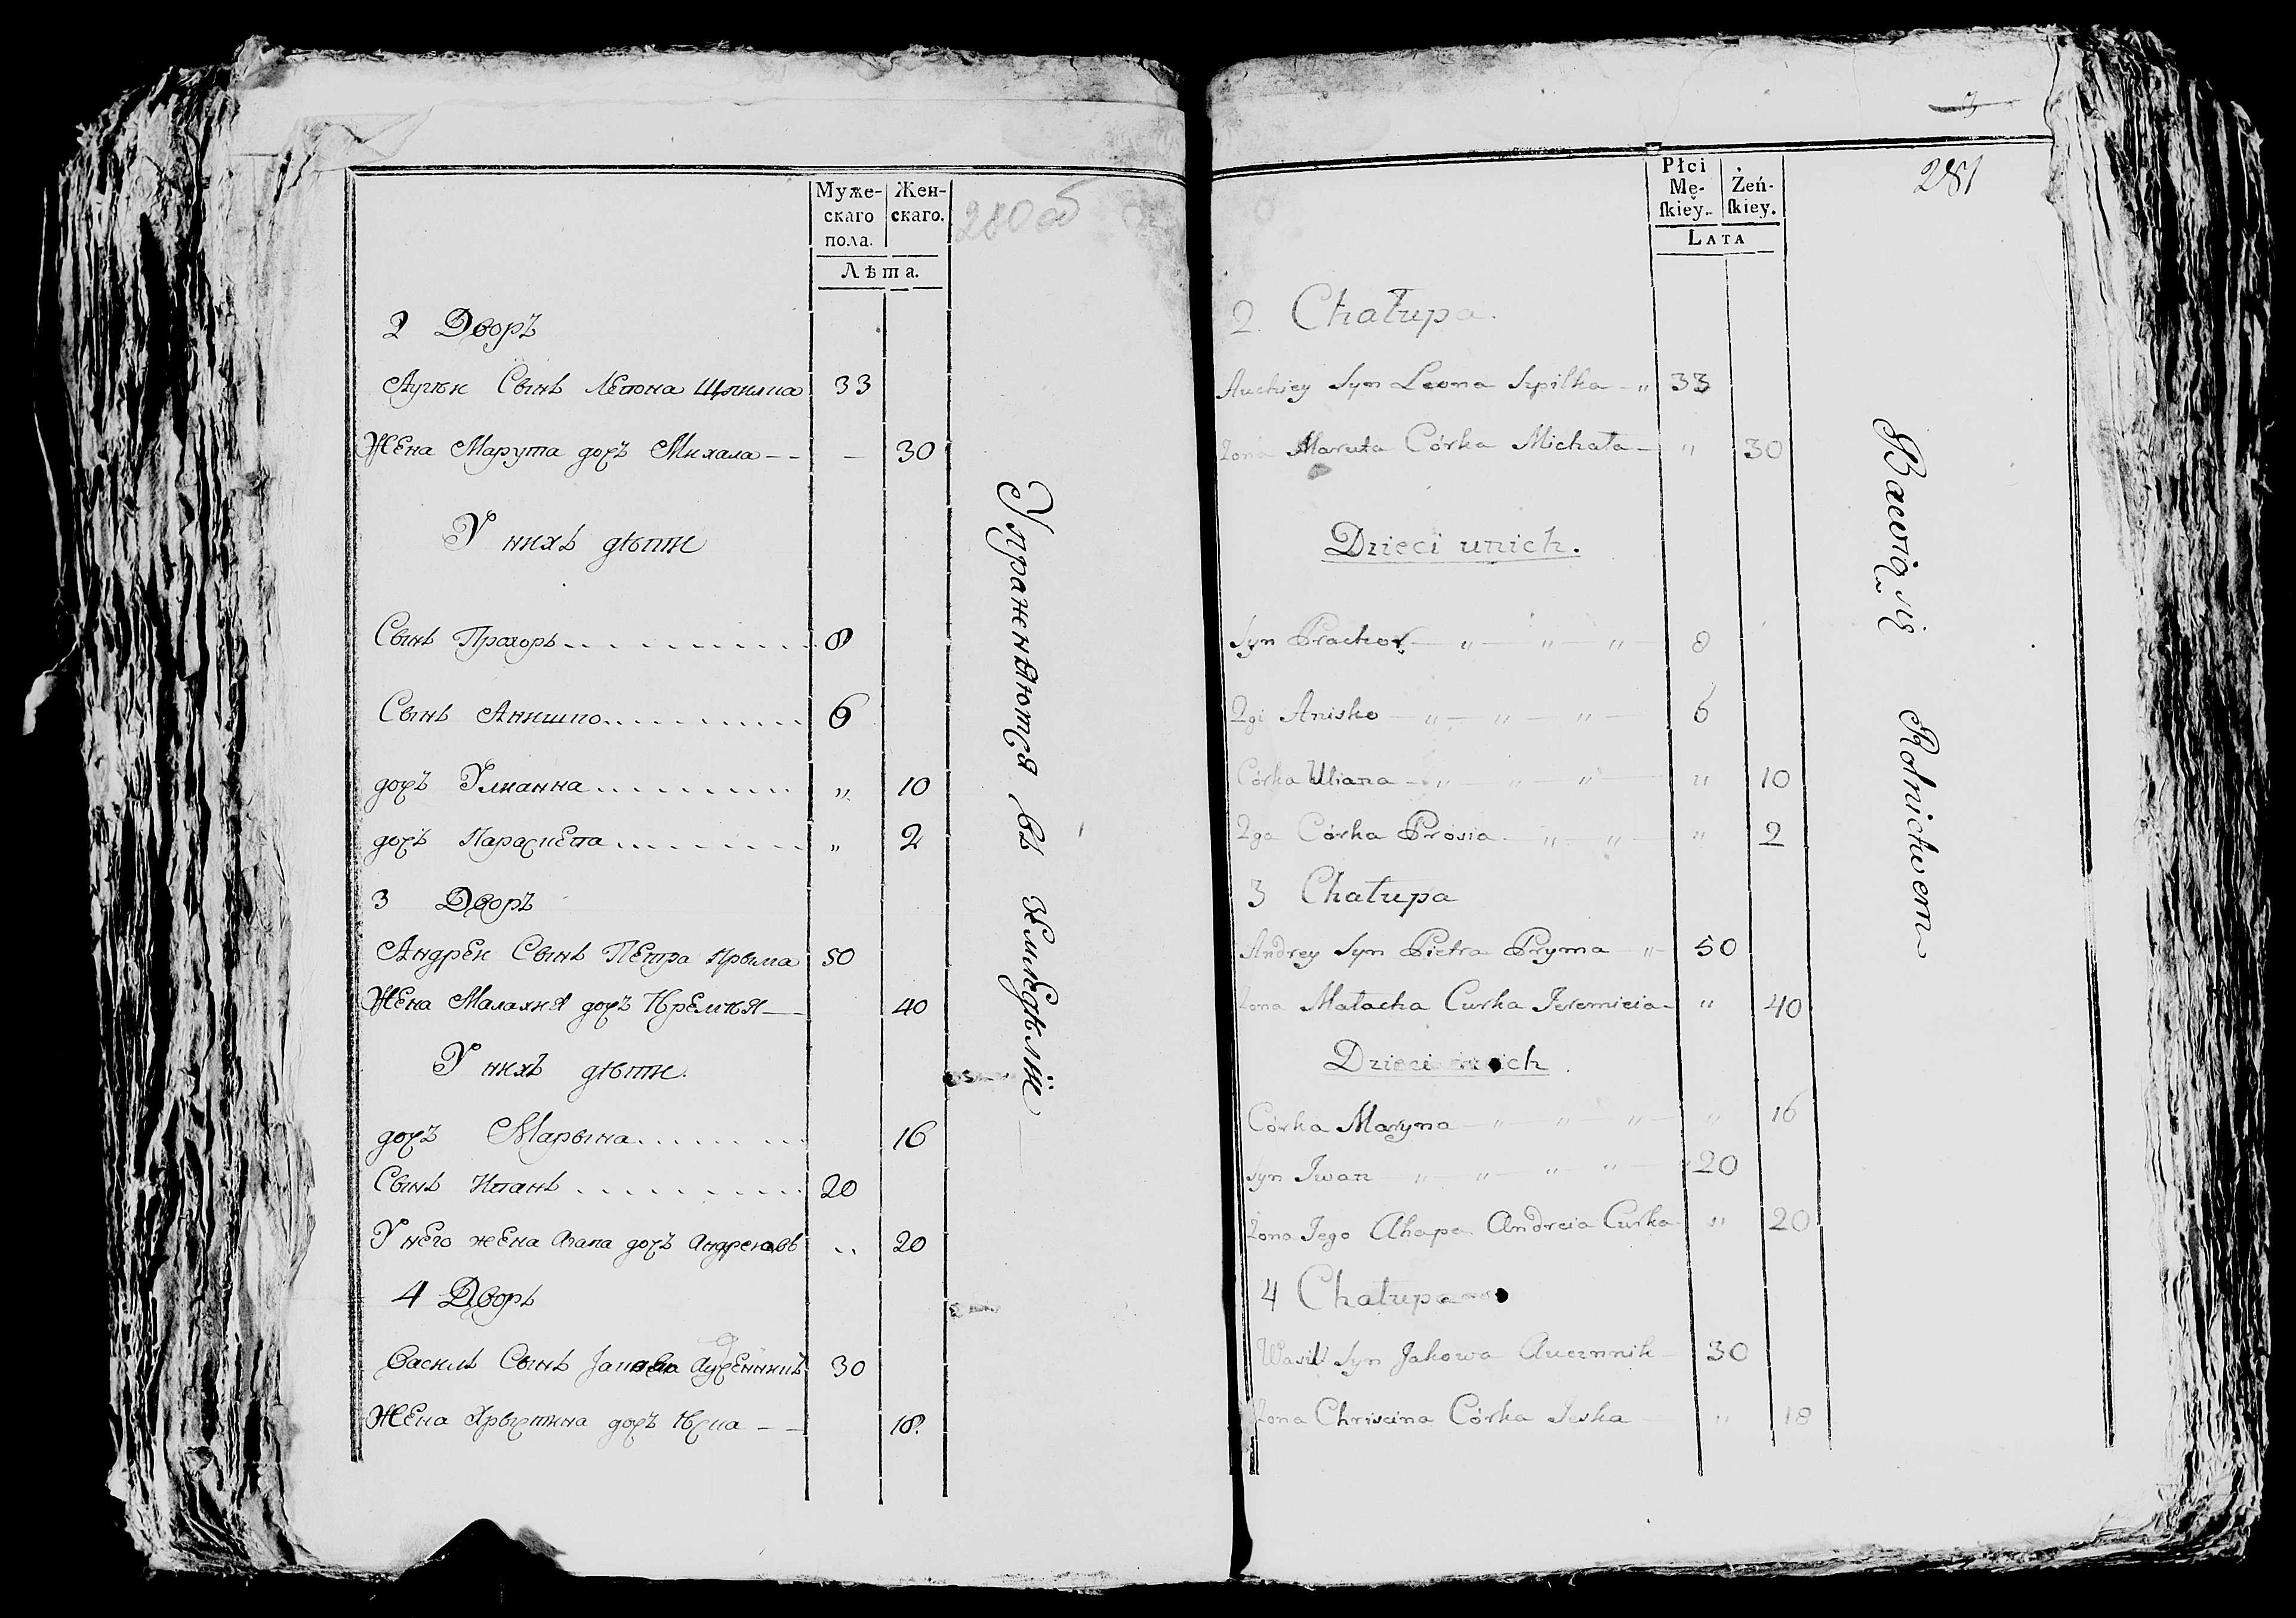 Муже-
скаго
пола.
Жен-
скаго.
Лѣта.
280об
2 Дворъ
Аугѣи Сынъ Леѡна Шпилка 33
Жена Марута дочъ Михала - - - 30
У нихъ дѣти
Сынъ Прохоръ 8
Сынъ Анишко 6
дочъ Улианна " 10
дочъ Параскева " 2
3 Дворъ
Андреи Сынъ Петра Прыма 50
Жена Малахия дочъ Яремѣя 40
У нихъ дѣти
дочъ Марына 16
Сынъ Иванъ 20
У него жена Агапа дочъ 20
4 Дворъ
Василь Сынъ 30
Жена Хрыстина дочъ 18.
Упражняются въ Земледѣліи
Płci
Mę-
ſkiey.
Żeń-
ſkiey.
LATA
281
2. Chałupa.
Auchiey Syn Leona Szpilka " 33
Żona Maruta Córka Michała " 30
Dzieci unich.
Syn Prachor " " " 8
2gi Anisko " " " 6
Córka Uliana " " " " 10
2ga Córka Prósia " " " 2
3 Chałupa
Andrey Syn Pietra Pryma " 50
Żona Małacha Curka Jeremieia " 40
Dzieci unich
Córka Maryna " " " " 16
Syn Iwan " " " " 20
Żona Jego Ahapa Andreia Curka " 20
4 Chałupa
Wasil Syn Jakowa Aucznnik 30
Żona Chriscina Córka Jeska " 18
Bawią się Rolnictwem